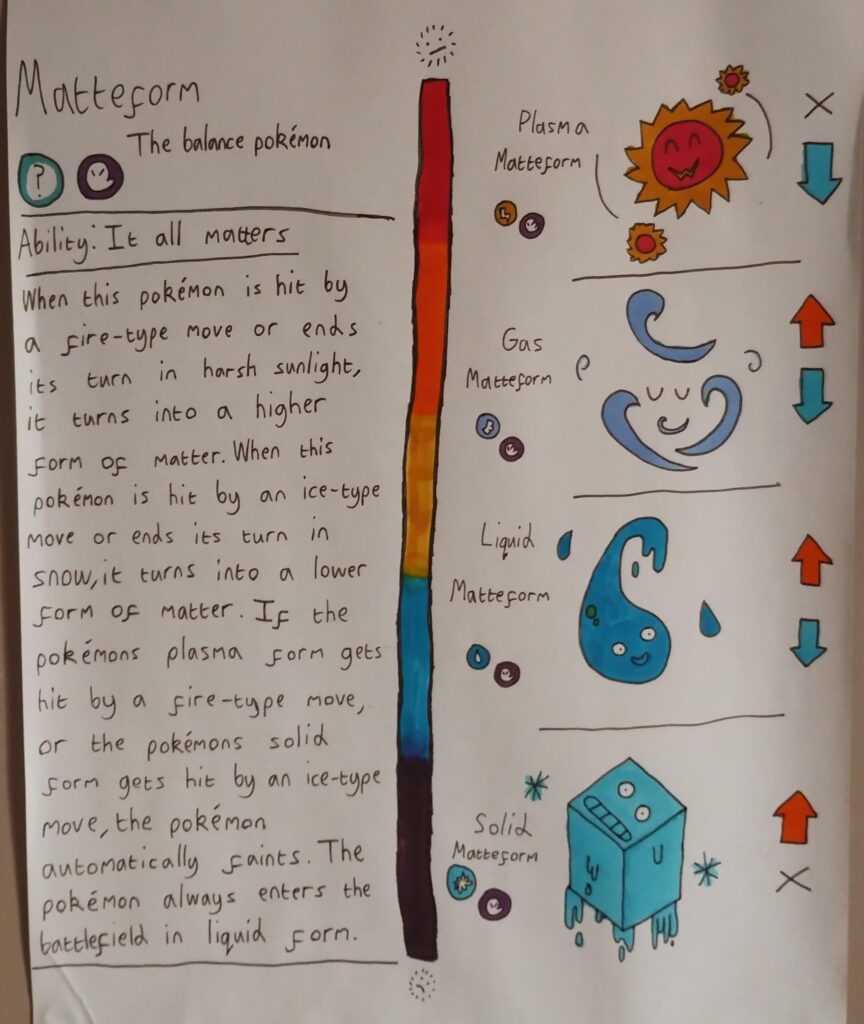 Matteform
The balance pokémon
?
Ability: It all matters
When this pokémon is hit by
a fire-type move or ends
its turn in harsh sunlight,
it turns into a higher
form of matter. When this
pokémon is hit by an ice-type
move or ends its turn in
snow, it turns into a lower
form of matter. If the
pokémons plasma form gets
hit by a fire-type move,
or the pokémons solid
form gets hit by an ice-type
move, the pokémon
automatically faints. The
pokémon always enters the
battlefield in liquid form.
Plasma
Matteform
Gas
Matteform
Liquid
Matteform
Solid
Matteform